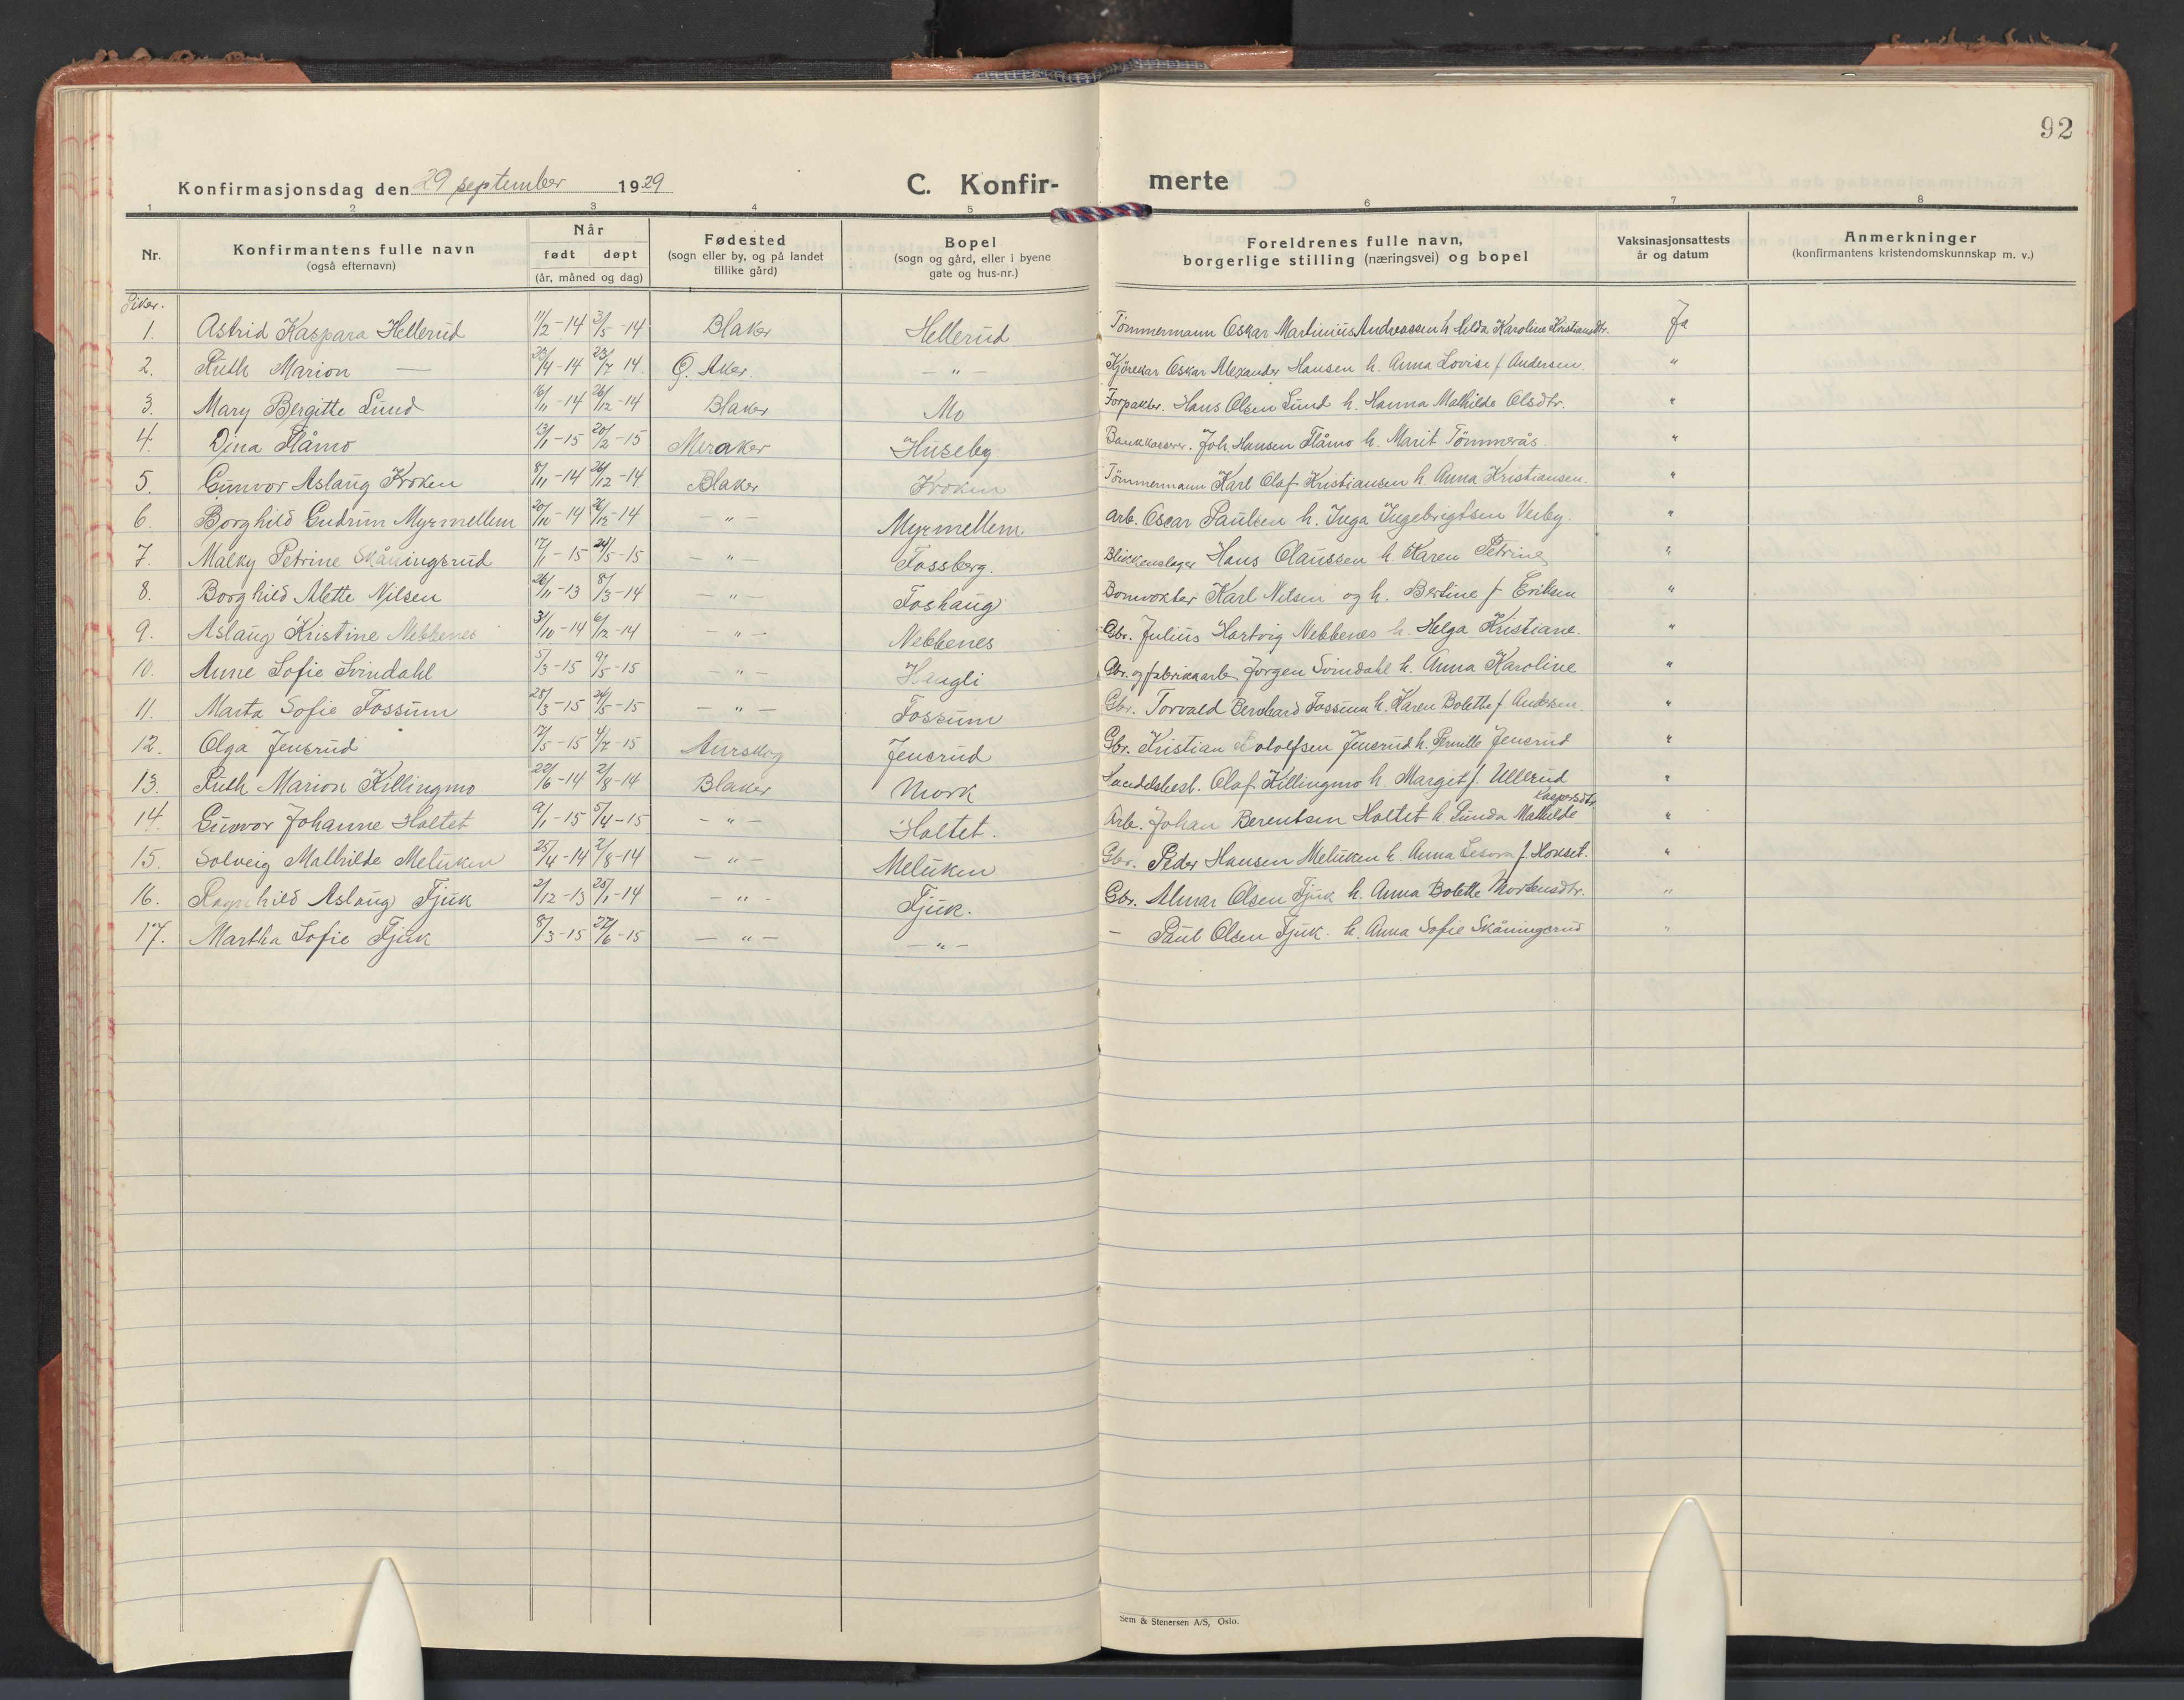 92
Konfirmasjonsdag den 29 september 1929 C. Konfir- merte
1 2 3 4 5 6 7 8
Nr. Konfirmantens fulle navn (også efternavn) Når født døpt (år, måned og dag) Fødested (sogn eller by, og på landet tillike gård) Bopel (sogn og gård, eller i byene gate og hus-nr.) Foreldrenes fulle navn, borgerlige stilling (næringsvei) og bopel Vaksinasjonsattests år og datum Anmerkninger (konfirmantens kristendomskunnskap m. v.)
Piker.
1. Astrid Kaspara Hellerud 11/2-14 3/5-14 Blaker Hellerud Tømmermann Oskar Martinius Andreassen h. Hilda Karoline Kristiansdtr. Ja
2. Ruth Marion — 23/4-14 23/7 14 Ø. Aker. — " — Kjørekar Oskar Alexander Hansen h. Anna Lovise f Andersen. "
3. Mary Bergitte Lund 16/11-14 26/12-14 Blaker Mo Forpakter. Hans Olsen Lund h. Hanna Mathilde Olsdtr. "
4. Dina Flåmo 13/1-15 20/2-15 Meraker Huseby Bankkasserer. Joh. Hansen Flåmo h. Marit Tømmerås. "
5. Gunvor Aslaug Kroken 8/11-14 26/12-14 Blaker Kroken Tømmermann Karl Olaf Kristiansen h. Anna Kristiansen. "
6. Borghild Gudrun Myrmellem 20/10-14 26/12-14 — " — Myrmellem. Arb. Oscar Paulsen h. Inga Ingebrigtsen Veiby. "
7. Malky Petrine Skåningsrud 17/1-15 24/5-15 — " — Fossberg. Blikkenslager Hans Olaussen h Karen Petrine "
8. Borghild Alette Nilsen 26/11-13 8/3-14 — " — Foshaug Bomvokter Karl Nilsen og h. Bertine f Eriksen "
9. Aslaug Kristine Nebbenes 31/10-14 6/12-14 — " — Nebbenes Gbr. Julius Hartvig Nebbenes h. Helga Kristiane. "
10. Anne Sofie Svindahl 5/3-15 9/5-15 — " — Haugli Gbr. og fabrikkarb Jørgen Svindahl h. Anna Karoline "
11. Marta Sofie Fossum 28/3-15 24/5-15 — " — Fossum Gbr. Torvald Bernhard Fossum h. Karen Bolette f. Andersen. "
12. Olga Jensrud 12/5-15 4/7-15 Aurskog Jensrud Gbr. Kristian Rolofsen Jensrud h. Pernille Jensrud "
13. Ruth Marion Killingmo 22/6-14 2/8-14 Blaker Mork Handelsbest. Olaf Killingmo h. Margit f. Ullerud "
14. Gunvor Johanne Holtet 9/1-15 5/4-15 — " — Holtet. Arb. Johan Berentsen Holtet h. Gunda Mathilde Kaspersdtr. "
15. Solveig Mathilde Meluken 25/4-14 2/8-14 — " — Meluken Gbr. Peder Hansen Meluken h. Anna f. Hovset. "
16. Ragnhild Aslaug Fjuk 2/12-13 25/1-14 — " — Fjuk. Gbr. Almar Olsen Fjuk h. Anna Bolette Mortensdtr. "
17. Martha Sofie Fjuk 8/3-15 27/6-15 — " — — " — — Paul Olsen Fjuk. h. Anna Sofie Skåningsrud "
Sem & Stenersen A/S, Oslo.